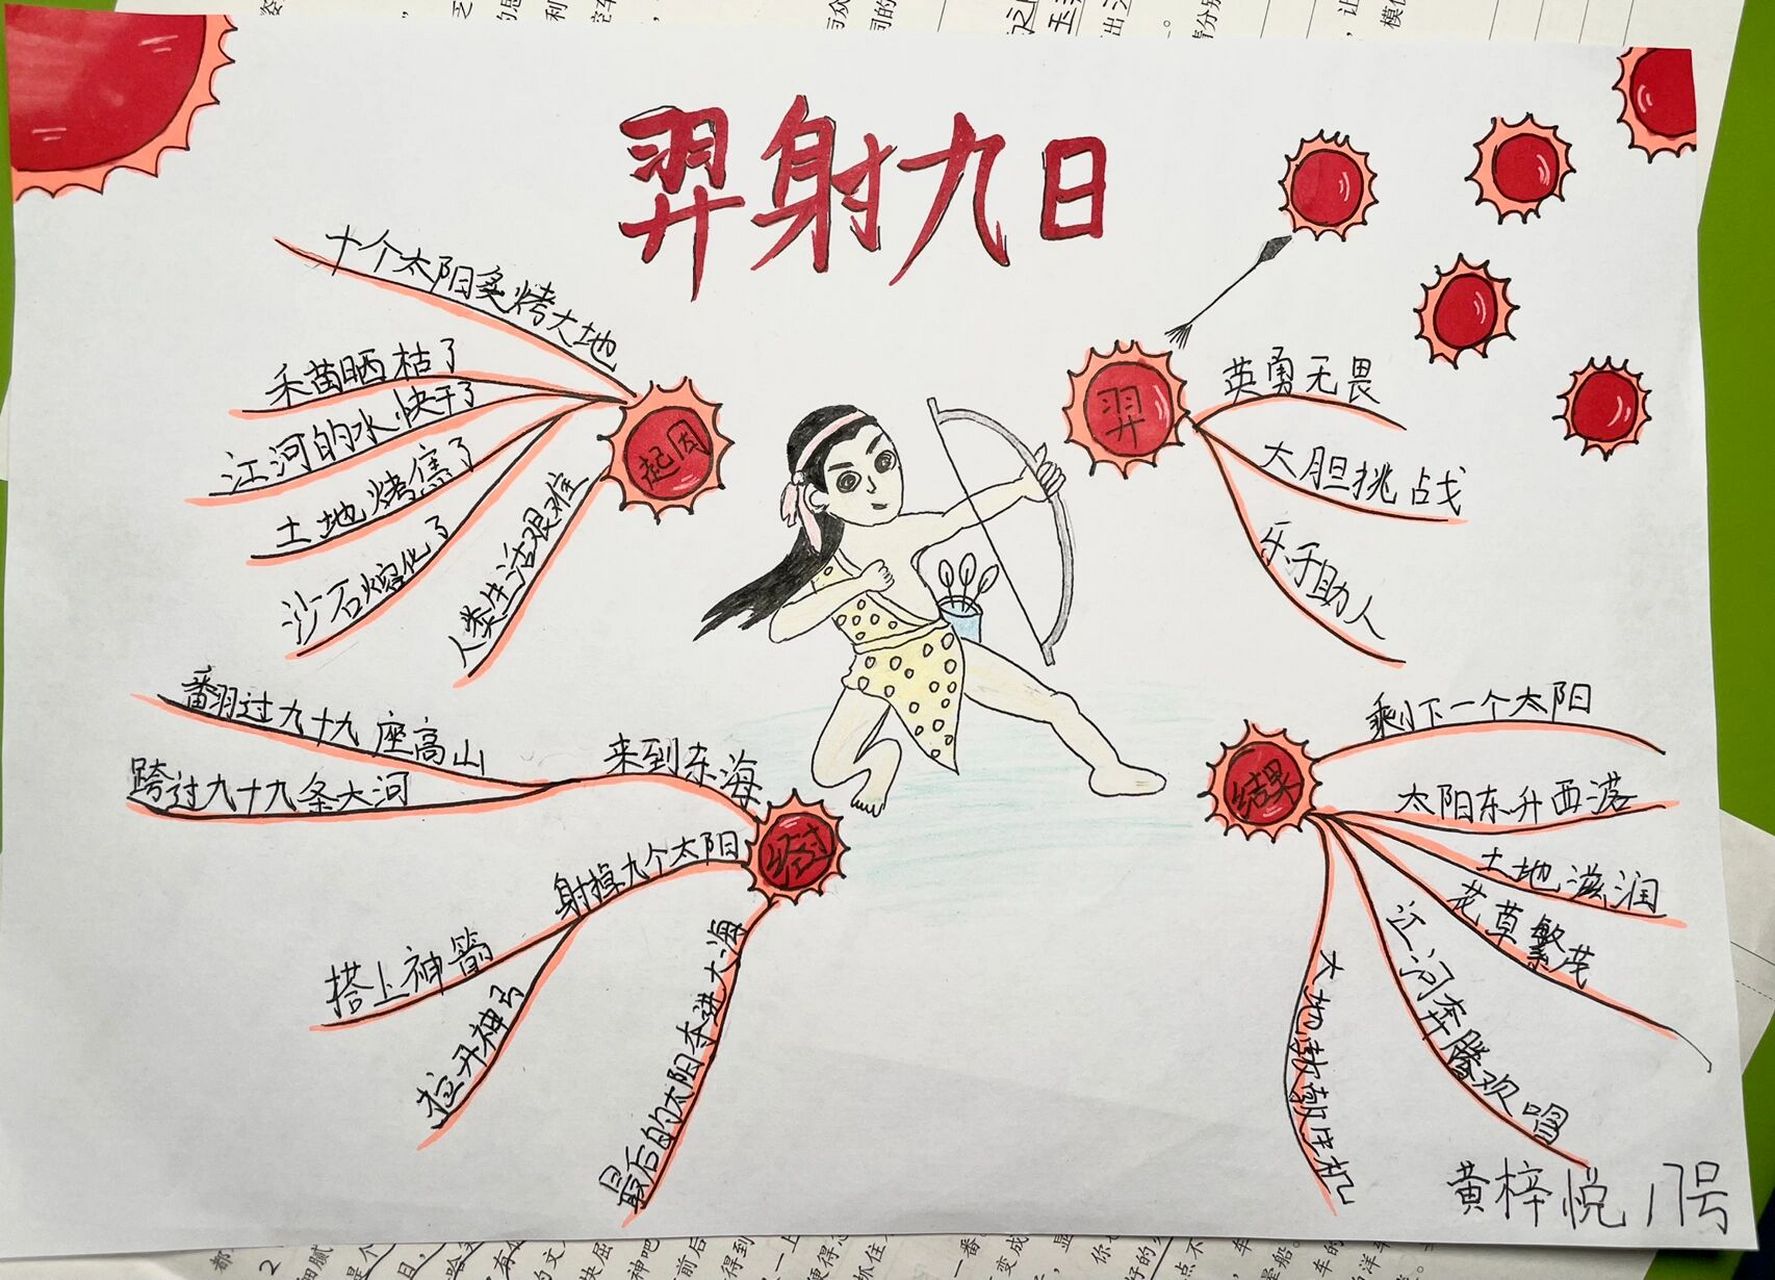 羿射九日
起因
十个太阳炙烤大地
禾苗晒枯了
江河的水快干了
土地烤焦了
沙石熔化了
人类生活艰难
羿
英勇无畏
大胆挑战
乐于助人
经过
来到东海
翻过九十九座高山
跨过九十九条大河
射掉九个太阳
搭上神箭
拉开神弓
最后的太阳
大海
结果
剩下一个太阳
太阳东升西落
土地滋润
花草繁茂
江河奔腾欢唱
大地
黄梓悦 17号